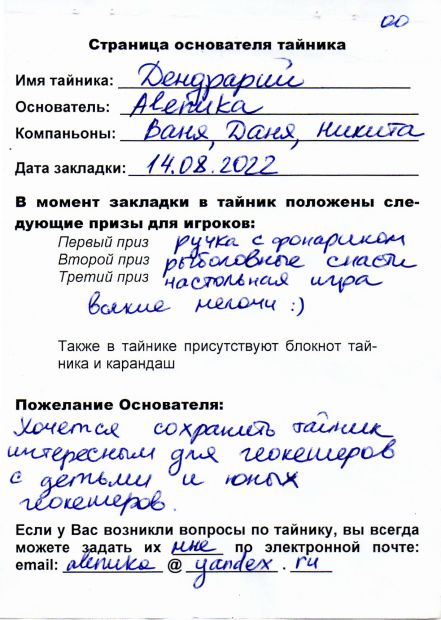 00
Страница основателя тайника
Имя тайника: Дендрарий
Основатель: Алепика
Компаньоны: Ваня, Даня, Никита
Дата закладки: 14.08.2022
В момент закладки в тайник положены сле-
дующие призы для игроков:
Первый приз ручка с фонариком
Второй приз рыболовные снасти
Третий приз настольная игра
всякие мелочи :)
Также в тайнике присутствуют блокнот тай-
ника и карандаш
Пожелание Основателя:
Хочется сохранить тайник
интересным для геокешеров
с детьми и юных
геокешеров.
Если у Вас возникли вопросы по тайнику, вы всегда
можете задать их мне по электронной почте:
email: alепика @ yandex . ru